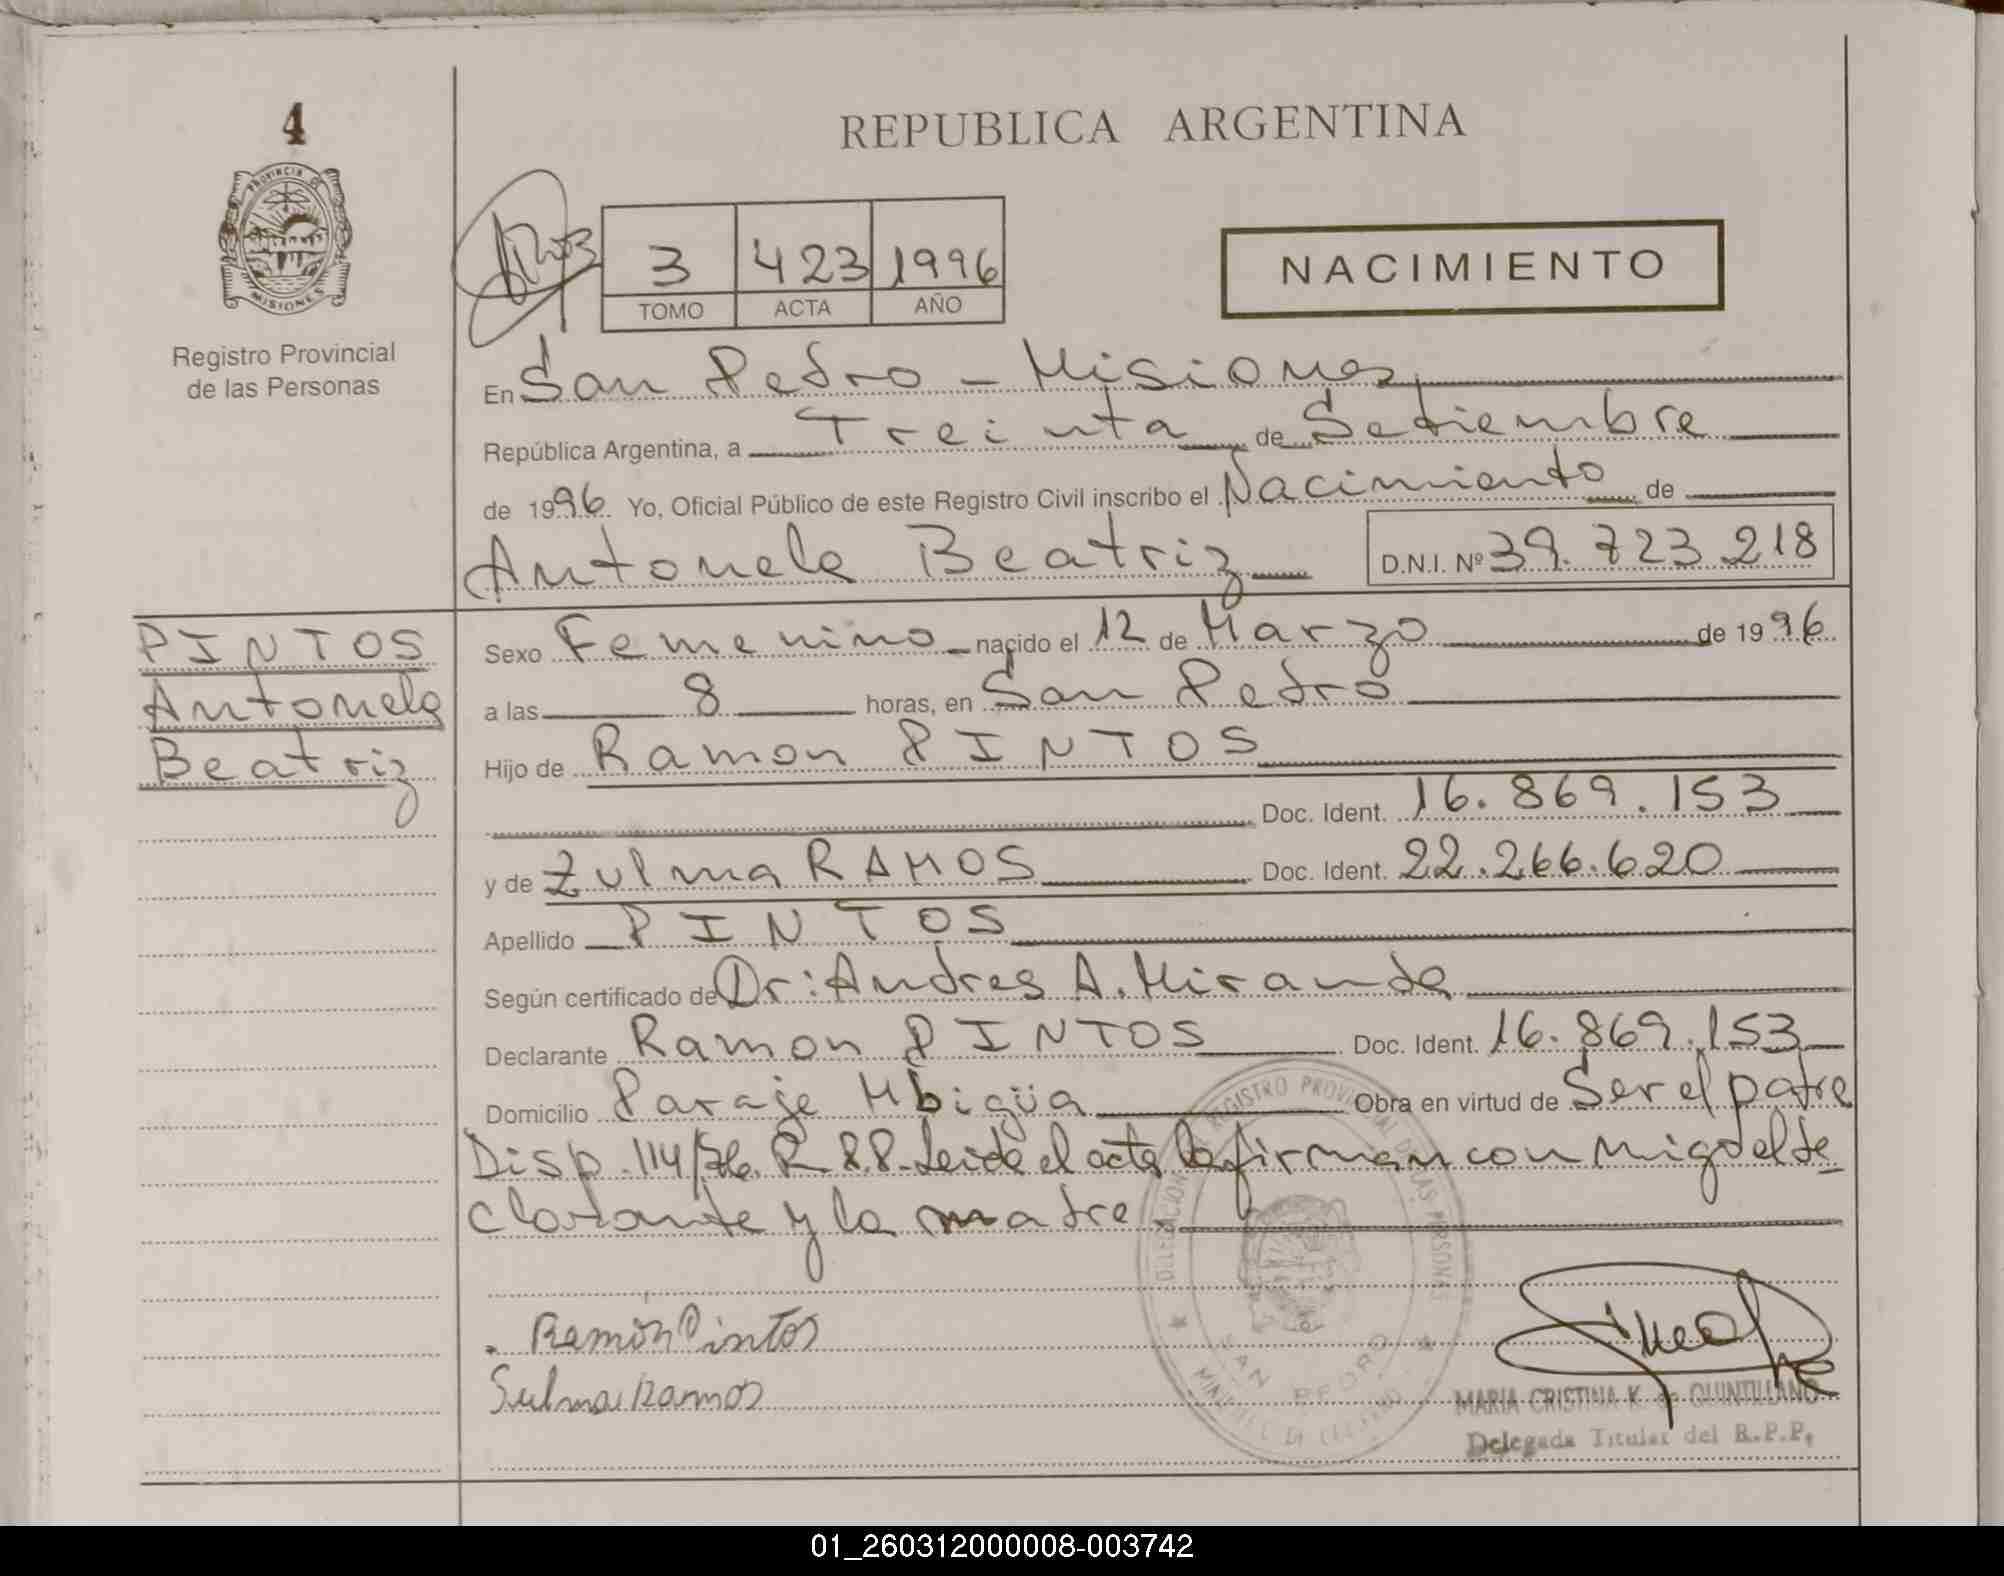 4
PROVINCIA DE
MISIONES
Registro Provincial
de las Personas
REPUBLICA ARGENTINA
3 423 1996
TOMO ACTA AÑO
NACIMIENTO
En San Pedro - Misiones
República Argentina, a Treinta de Setiembre
de 1996. Yo, Oficial Público de este Registro Civil inscribo el Nacimiento de
Antonela Beatriz D.N.I. Nº 39.723.218
PINTOS
Antonela
Beatriz
Sexo Femenino nacido el 12 de Marzo de 1996
a las 8 horas, en San Pedro
Hijo de Ramon PINTOS
Doc. Ident. 16.869.153
y de Zulma RAMOS Doc. Ident. 22.266.620
Apellido PINTOS
Según certificado de Dr: Andres A. Miranda
Declarante Ramon PINTOS Doc. Ident. 16.869.153
Domicilio Paraje Mbigüa Obra en virtud de Ser el padre
Disp. 114/76. R 88. Leida el acta la firman conmigo el de
clarante y la madre.
Ramón Pintos
Sulma Ramos
DELEGACION REGISTRO PROVINCIAL DE LAS PERSONAS
SAN PEDRO
MARIA CRISTINA K. de QUINTILLANO
Delegada Titular del R.P.P.
01_260312000008-003742